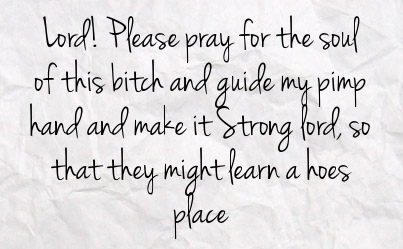 Lord! Please pray for the soul
of this bitch and guide my pimp
hand and make it Strong lord, so
that they might learn a hoes
place